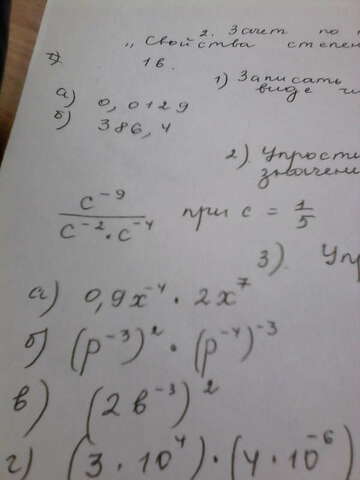 2. Зачет по
„Свойства степен
1в.
1) Записать
виде
а) 0,0129
б) 386,4
2) Упрости
значени
c⁻⁹ / (c⁻² · c⁻⁴) при c = 1/5
3). Упр
а) 0,9x⁻⁴ · 2x⁷
б) (p⁻³)² · (p⁻⁴)⁻³
в) (2b⁻³)²
г) (3 · 10⁴) · (4 · 10⁻⁶)